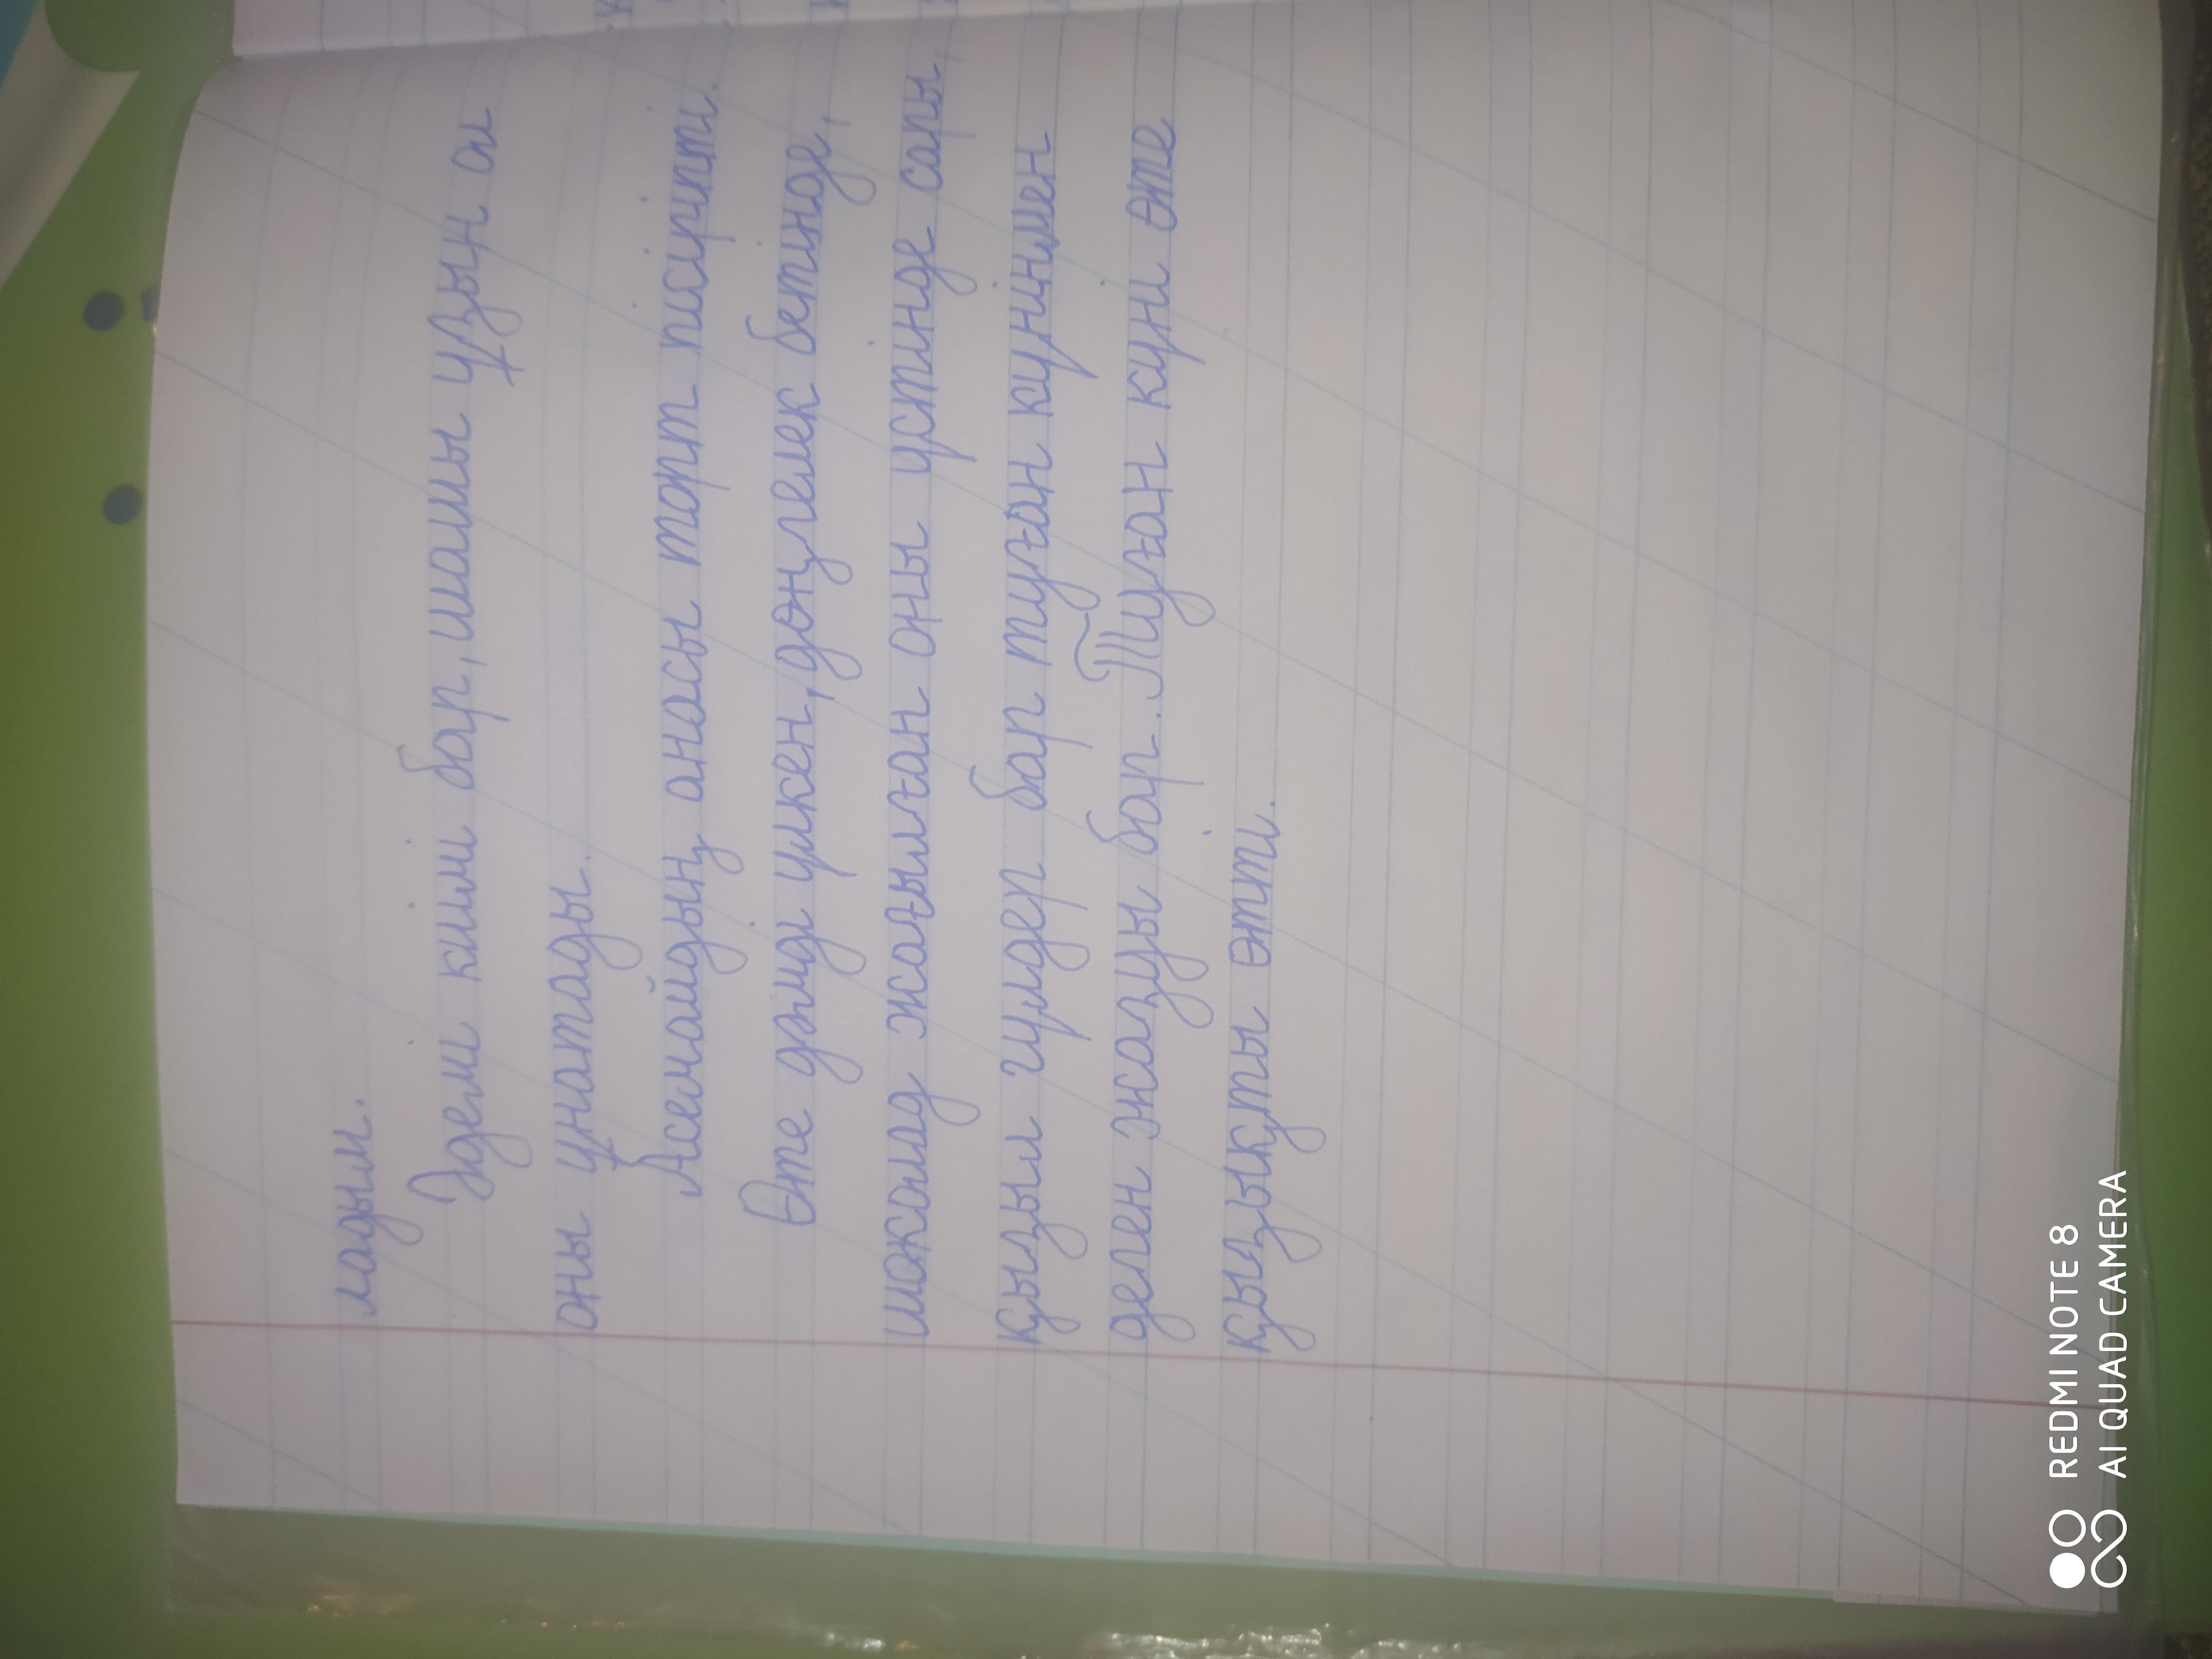 ладым.
Әдемі киімі бар, шашы ұзын ол
оны ұнатады.
Асемайдың анасы торт пісіріпті.
Өте дәмді үлкен, дөңгелек бетінде,
шоколад жағылған оны үстінде сары,
қызыл гүлдер бар туған күнінмен
делен жазуы бар. Туған күні өте
қызықты өтті.
REDMI NOTE 8
AI QUAD CAMERA